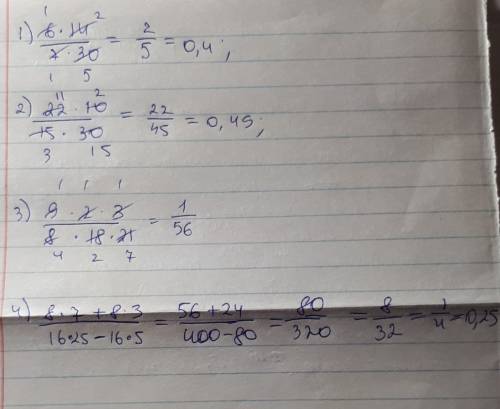 1) (6·14)/(7·30) = 2/5 = 0,4;
1 2
1 5
2) (22·10)/(15·30) = 22/45 = 0,49;
11 2
3 15
3) (9·2·3)/(8·18·21) = 1/56
1 1 1
4 2 7
4) (8·7+8·3)/(16·25−16·5) = (56+24)/(400−80) = 80/320 = 8/32 = 1/4 = 0,25